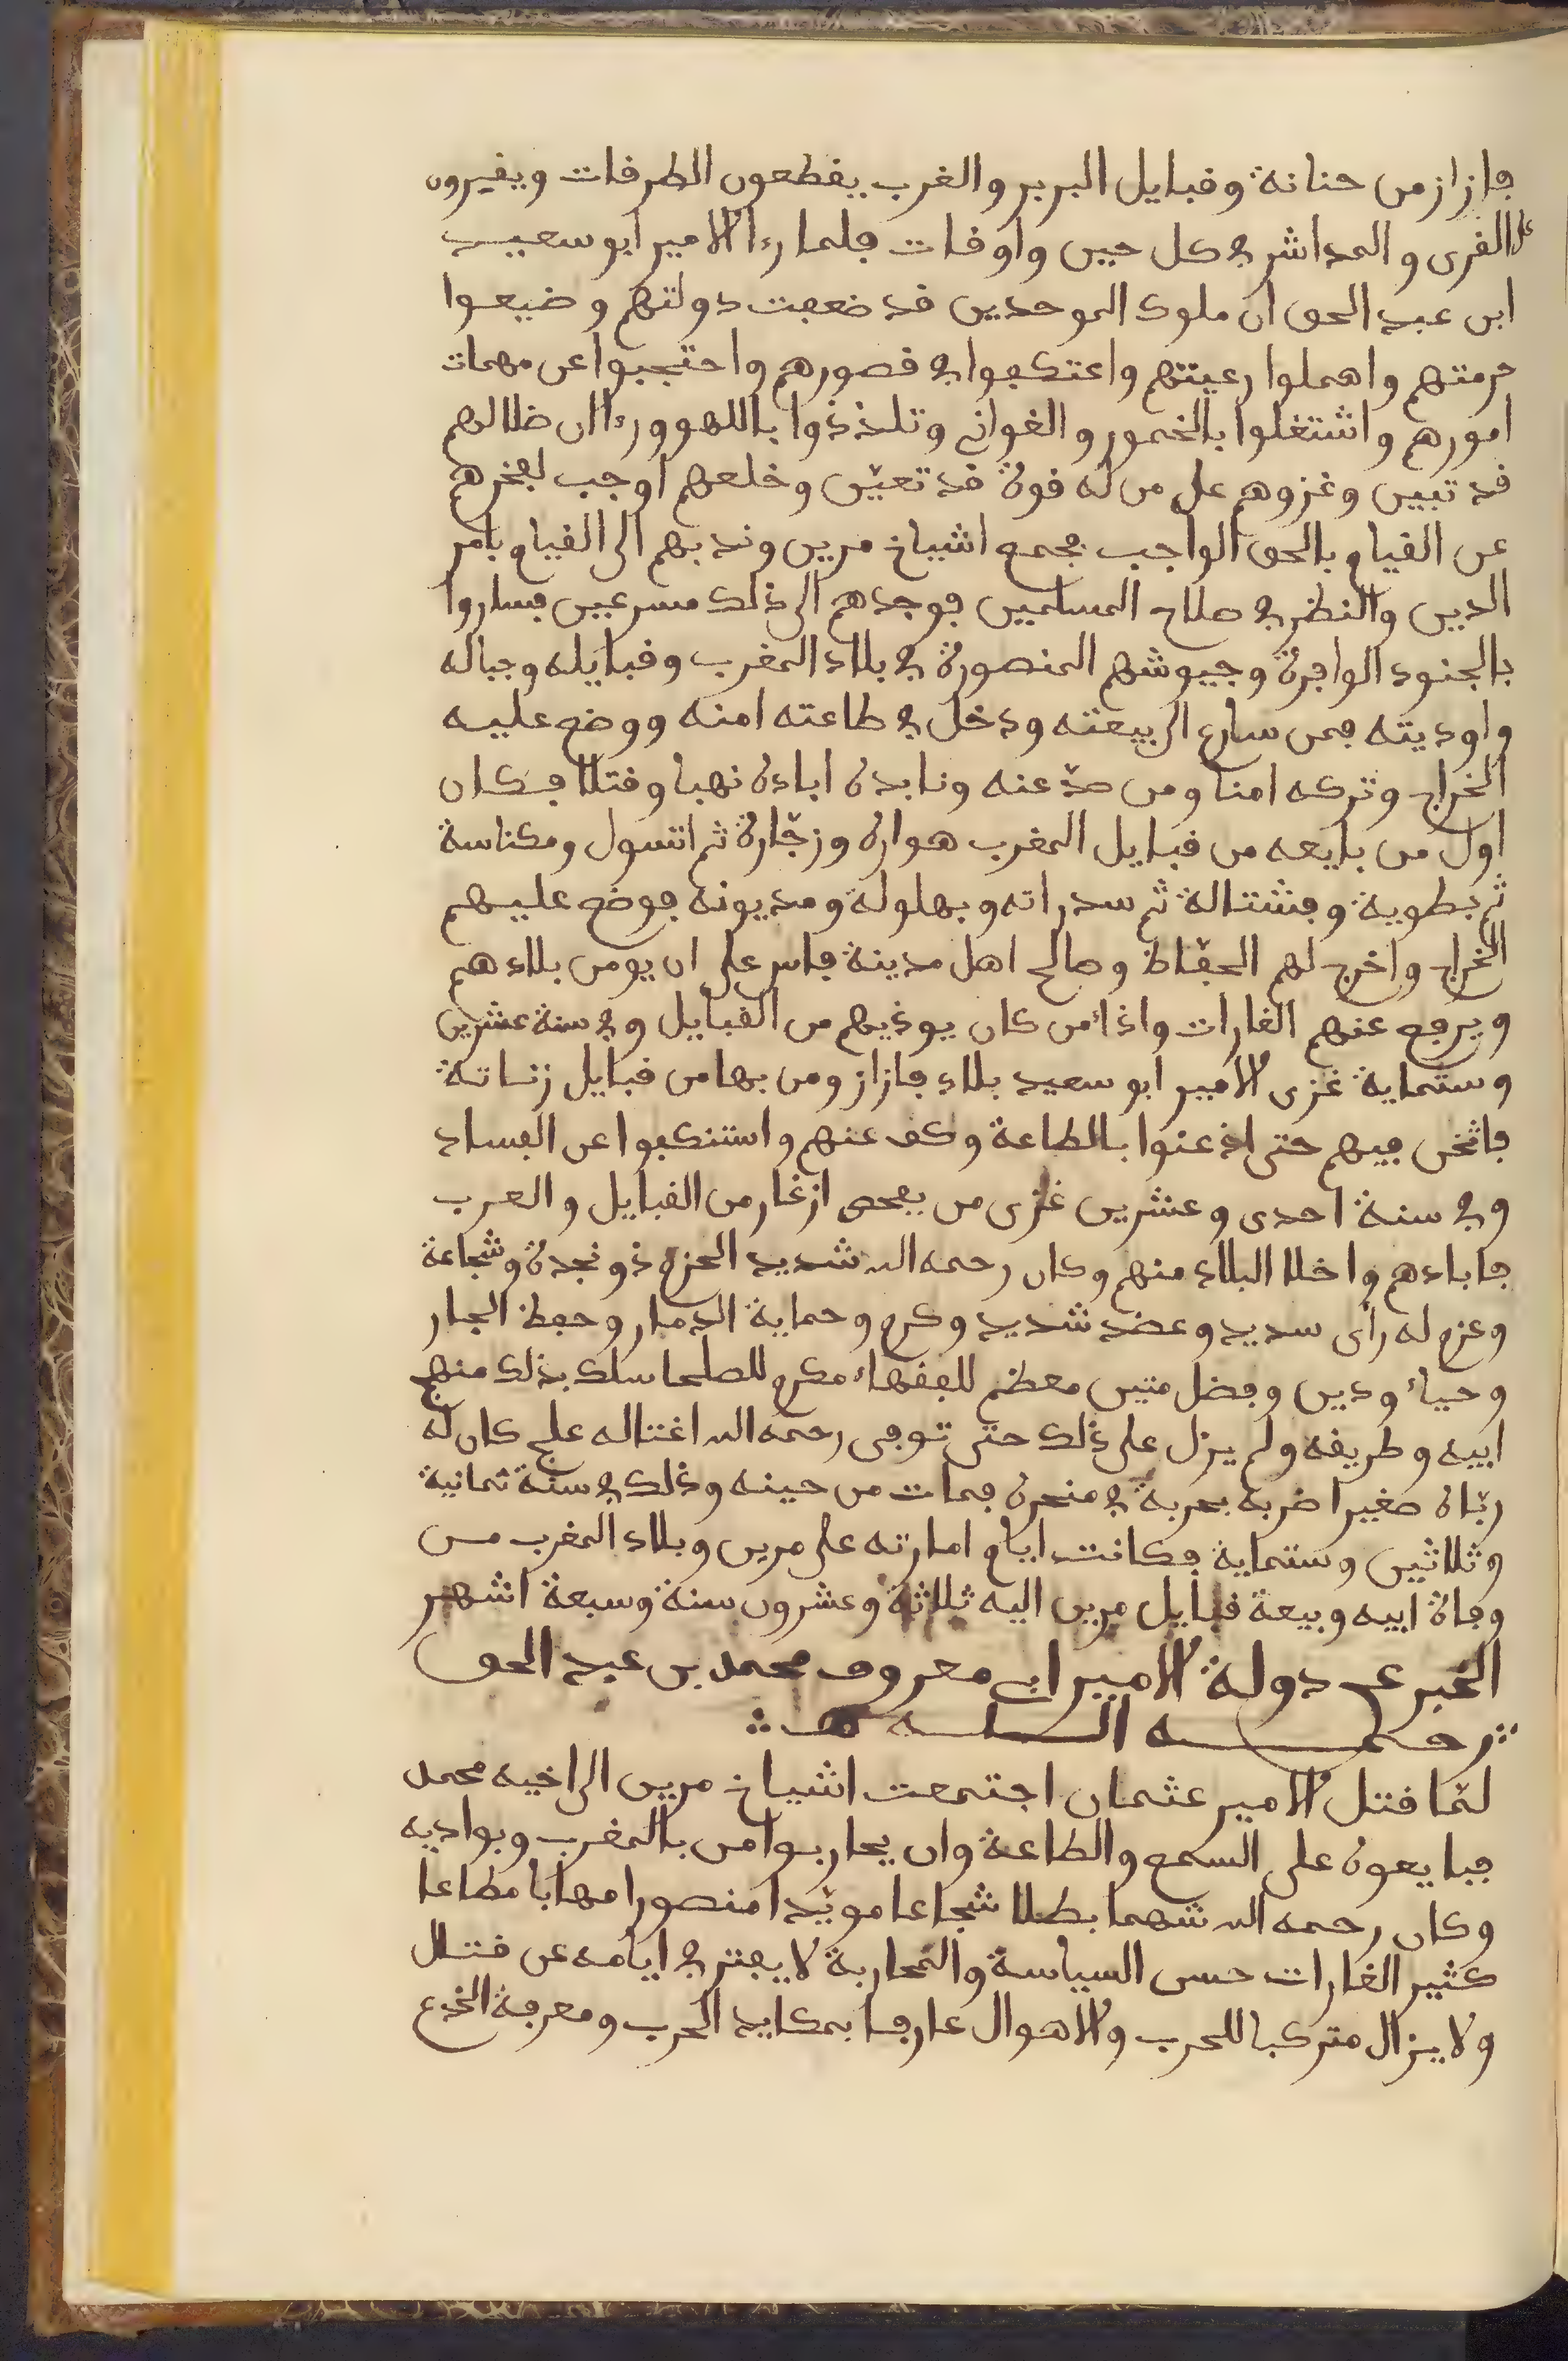 فازاز من جناتة وقبايل البربر والغرب يقطعون الطرقات ويغيرون
على القرى والمداشر في كل حين واوقات فلما رءا الامير ابو سعيد
ابن عبد الحق ان ملوك الموحدين قد ضعفت دولتهم وضيعوا
حرمتهم واهملوا رعيتهم واعتكفوا في قصورهم واحتجبوا عن مهمات
امورهم واشتغلوا بالخمور والغواني وتلذذوا باللهو ورءا ان ضلالهم
قد تبين وغزوهم على من له قوة قد تعيّن وخلعهم اوجب لعجزهم
عن القيام بالحق الواجب فجمع اشياخ مرين وندبهم الى القيام بامر
الدين والنظر في صلاح المسلمين فوجدهم الى ذلك مسرعين فساروا
بالجنود الوافرة وجيوشهم المنصورة في بلاد المغرب وقبايله وجباله
واوديته فمن سارع الى بيعته ودخل في طاعته امنه ووضع عليه
الخراج وتركه امنا ومن صدّ عنه ونابده اباده نهبا وقتلا فكان
اول من بايعه من قبايل المغرب هواره وزجّارة ثم اتسول ومكناسة
ثم بطوية وفشتالة ثم سدراته وبهلولة ومديونه فوضع عليهم
الخراج واخرج لهم الحفّاظ وصالح اهل مدينة فاس على ان يومن بلادهم
ويرفع عنهم الغارات واذاء من كان يوذيهم من القبايل وفي سنة عشرين
وستماية غزى الامير ابو سعيد بلاد فازاز ومن بها من قبايل زناتة
فاثخن فيهم حتى اذعنوا بالطاعة وكف عنهم واستنكفوا عن الفساد
وفي سنة احدى وعشرين غزى من بفحص ازغار من القبايل والعرب
فابادهم واخلا البلاد منهم وكان رحمه الله شديد الحزم ذو نجدة وشجاعة
وعزم له رأى سديد وعضد شديد وكرم وحماية الدمار وحفظ الجار
وحياء ودين وفضل متين معظم للفقهاء مكرم للصلحا سلك بذلك منهج
ابيه وطريقه ولم يزل على ذلك حتى توفى رحمه الله اغتاله علج كان له
ربّاه صغيرا ضربه بحربة في منحره فمات من حينه وذلك في سنة ثمانية
وثلاثين وستماية فكانت ايام امارته على مرين وبلاد المغرب من
وفاة ابيه وبيعة قبايل مرين اليه ثلاثة وعشرون سنة وسبعة اشهر
الخبر عن دولة الامير ابي معروف محمد بن عبد الحق
رحمه الله
لمّا قتل الامير عثمان اجتمعت اشياخ مرين الى اخيه محمد
فبايعوه على السمع والطاعة وان يحاربوا من بالمغرب وبواديه
وكان رحمه الله شهما بطلا شجاعا مويّدا منصورا مهابا مطاعا
كثير الغارات حسن السياسة والمحاربة لا يفتر في ايامه عن قتال
ولا يزال متركبا للحرب والاهوال عارفا بمكايد الحرب ومعرفة الخدع